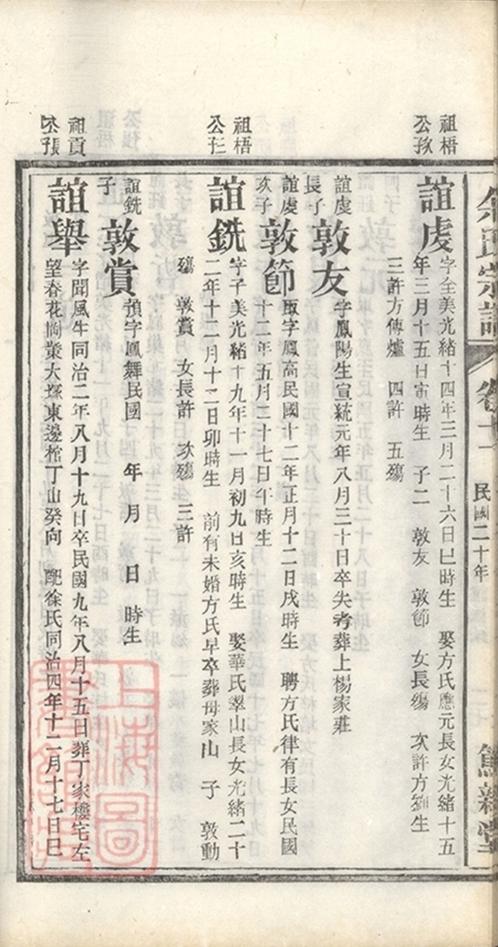 余氏宗譜
卷十一
民國二十年
祖梧
公孜
誼虔
字全美光緒十四年三月二十六日巳時生 娶方氏應元長女光緒十五
年三月十五日寅時生 子二 敦友 敦節 女長殤 次許方 生
三許方傳爐 四許 五殤
誼虔
長子
敦友
字鳳陽生宣統元年八月三十日卒失考葬上楊家莊
誼虔
次子
敦節
取字鳳高民國十二年正月十二日戌時生 聘方氏律有長女民國
十二年五月二十七日午時生
祖梧
公仨
誼銑
字子美光緒十九年十一月初九日亥時生 娶華氏翠山長女光緒二十
二年十二月十二日卯時生 前有未婚方氏早卒葬母家山 子 敦動
殤 敦賞 女長許 次殤 三許
誼銑
子
敦賞
預字鳳舞民國 年 月 日 時生
祖貢
公張
誼舉
字聞風生同治二年八月十九日卒民國九年八月十五日葬丁家樓宅左
望春花崗業大塚東邊棺丁山癸向 配徐氏同治四年十二月十七日巳
上海圖